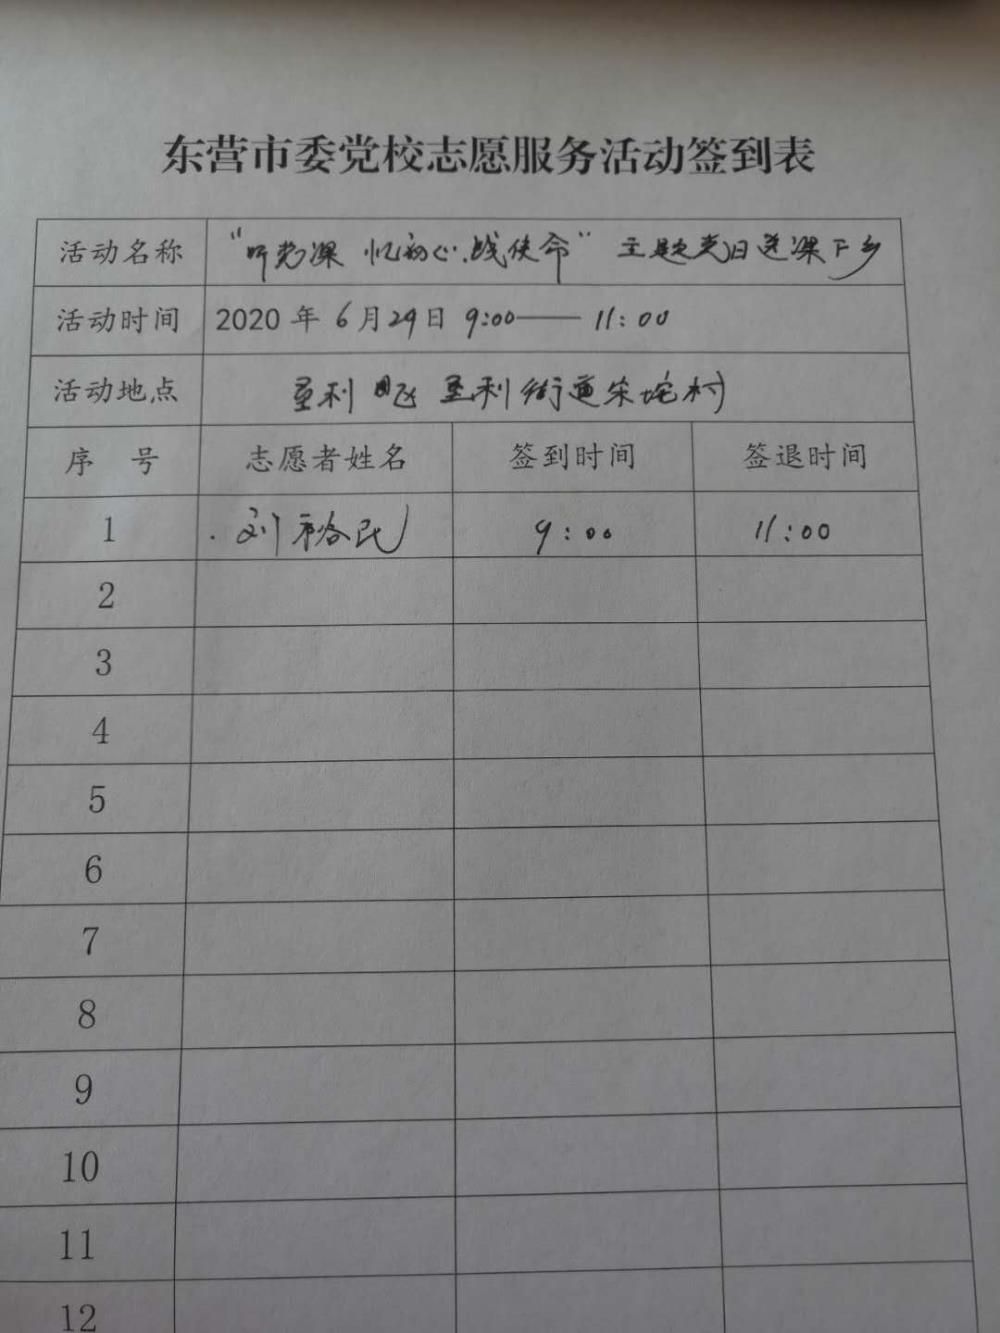 东营市委党校志愿服务活动签到表
活动名称 "听党课 忆初心.战使命" 主题党日送课下乡
活动时间 2020年6月29日 9:00——11:00
活动地点 垦利 垦利街道朱坨村
序 号 志愿者姓名 签到时间 签退时间
1 刘裕民 9:00 11:00
2
3
4
5
6
7
8
9
10
11
12